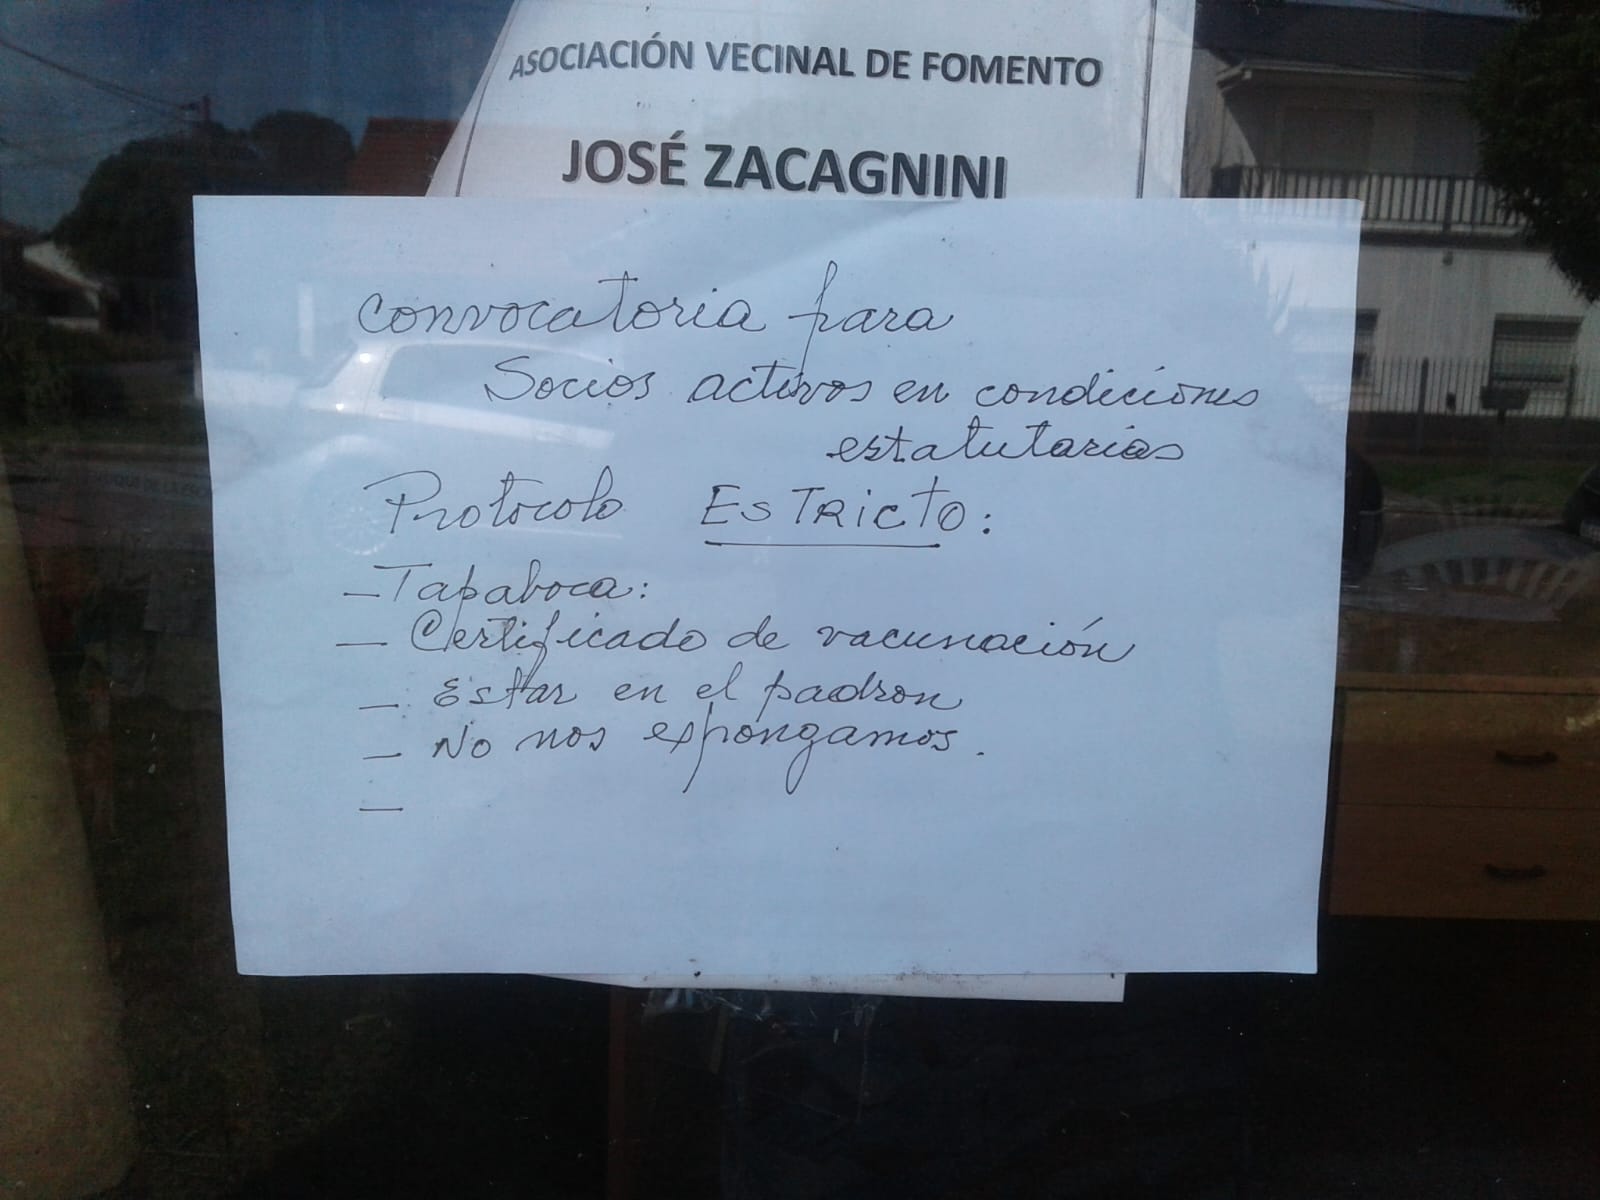 ASOCIACIÓN VECINAL DE FOMENTO
JOSÉ ZACAGNINI
Convocatoria para
Socios activos en condiciones
estatutarias
Protocolo EsTRICTO:
- Tapaboca:
- Certificado de vacunación
- Estar en el padron
- No nos expongamos.
-